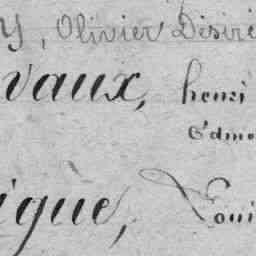 y, Olivier Désiré
vaux, henri
Edmo
igue, Loui